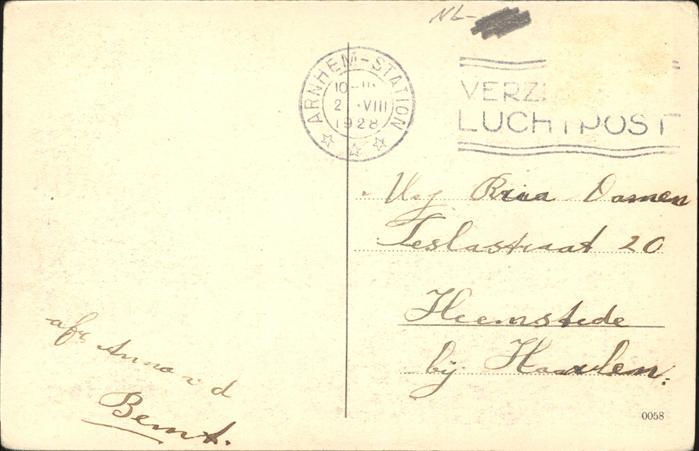 NL-
ARNHEM-STATION
10
2 VIII
1928
VERZ
LUCHTPOST
Damen
Teslastraat 20
Heemstede
bij Haarlem.
afz Anna
Bernt.
0058